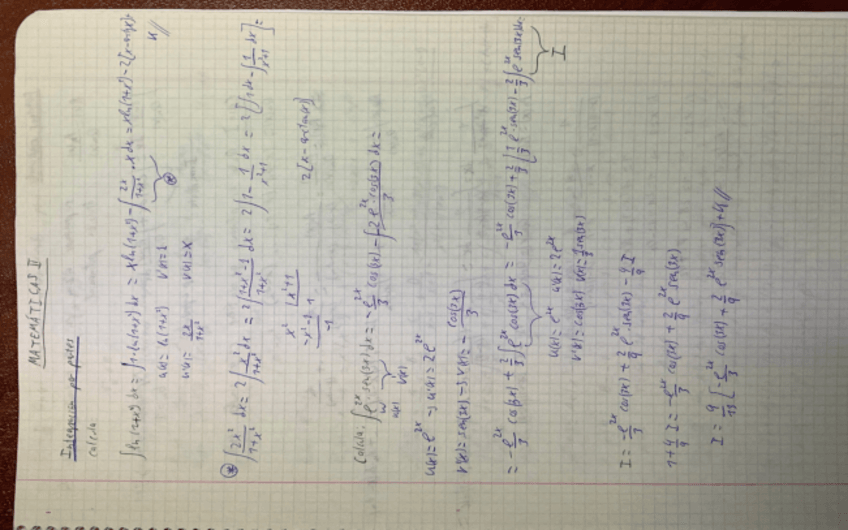 MATEMÁTICAS II
Integración por partes
Calcula
∫ln(1+x²)dx = ∫1·ln(1+x²)dx = xln(1+x²) - ∫2x/1+x² · x dx = xln(1+x²) - 2[x-
u(x)= ln(1+x²) v'(x)=1
u'(x)= 2x/1+x² v(x)=x
⊛ ∫2x²/1+x² dx = 2∫x²/1+x² dx = 2∫1+x²-1/1+x² dx = 2∫1- 1/x²+1 dx = 2[∫1dx - ∫1/x²+1 dx]=
x² | x²+1
-x²-1 1
-1
Calcula: ∫e^2x · sen(3x)dx = -e^2x/3 cos(3x) - ∫-2e^2x·cos(3x)/3 dx =
u(x) v'(x)
u(x)= e^2x → u'(x)= 2e^2x
v'(x)= sen(3x) → v(x)= - cos(3x)/3
= -e^2x/3 cos(3x) + 2/3∫e^2x cos(3x)dx = -e^2x/3 cos(3x) + 2/3[1/3 e^2x · sen(3x) - 2/3∫e^2x sen(3x)dx
I
u(x)= e^2x u'(x)= 2e^2x
v'(x)= cos(3x) v(x)= 1/3 sen(3x)
I = -e^2x/3 cos(3x) + 2/9 e^2x · sen(3x) - 4/9 I
1+4/9 I = -e^2x/3 cos(3x) + 2/9 e^2x sen(3x)
I = 9/13 [-e^2x/3 cos(3x) + 2/9 e^2x sen(3x)] + K//